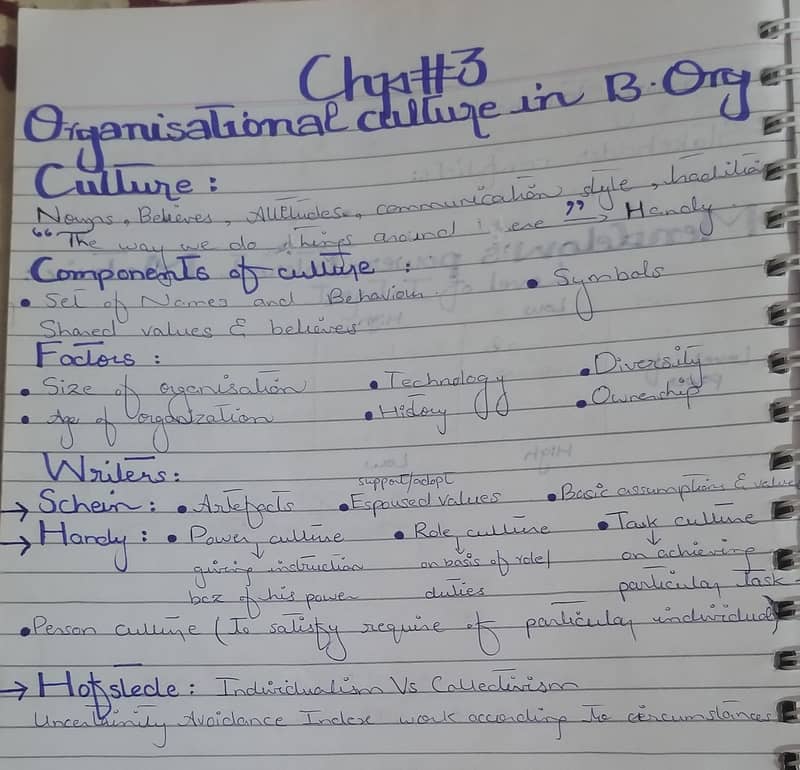 Chp#3
Organisational culture in B. Org
Culture:
Norms, Believes, Attitudes, communication style, tradition
"The way we do things around here" → Handy
Components of culture:
• Set of Names and Behaviour • Symbols
Shared values & believes
Factors:
• Size of organisation • Technology • Diversity
• Age of organization • History • Ownership
Writers:
support/adopt
→ Schein: • Artefacts • Espoused values • Basic assumptions & value
→ Handy: • Power culture • Role culture • Task culture
↓ ↓ ↓
giving instruction on basis of role/ on achieving
bcz of his power duties particular Task
• Person culture (To satisfy require of particular individual)
→ Hofstede: Individualism Vs Collectivism
Uncertainity Avoidance Index work according to circumstances